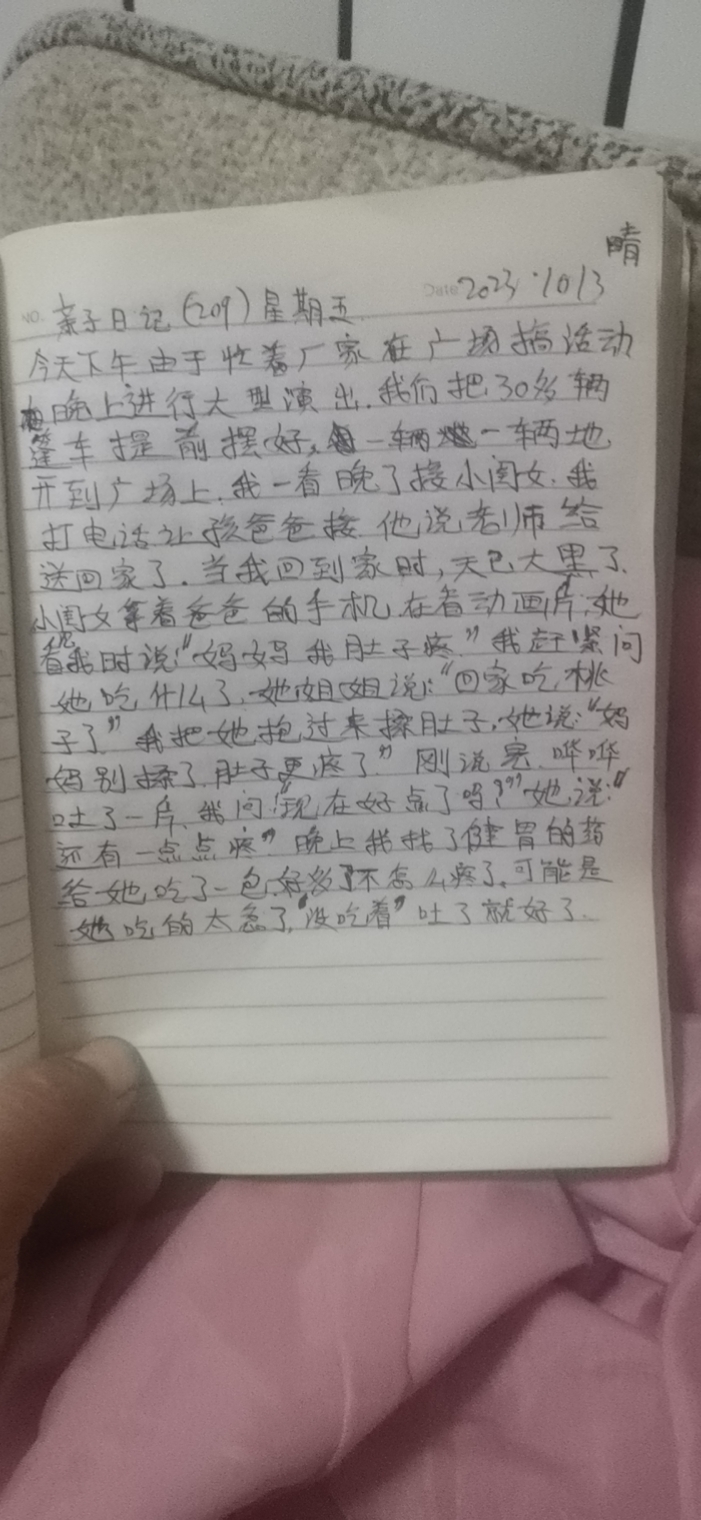 晴
NO. 亲子日记(209)星期五 Date 2023.10.13
今天下午由于忙着厂家在广场搞活动
晚上进行大型演出.我们把30多辆
篷车提前摆好,一辆一辆地
开到广场上.我一看晚了接小闺女.我
打电话让孩爸爸接.他说老师给
送回家了.当我回到家时,天已大黑了.
小闺女拿着爸爸的手机在看动画片,她
看我时说:“妈妈我肚子疼”我赶紧问
她吃什么了.她姐姐说:“回家吃桃
子了”我把她抱过来揉肚子,她说:“妈
妈别揉了.肚子更疼了”刚说完.哗哗
吐了一片.我问“现在好点了吗?”她说:“
还有一点点疼”晚上我找了健胃的药
给她吃了一包.好多了不怎么疼了.可能是
她吃的太急了,“没吃着”吐了就好了.